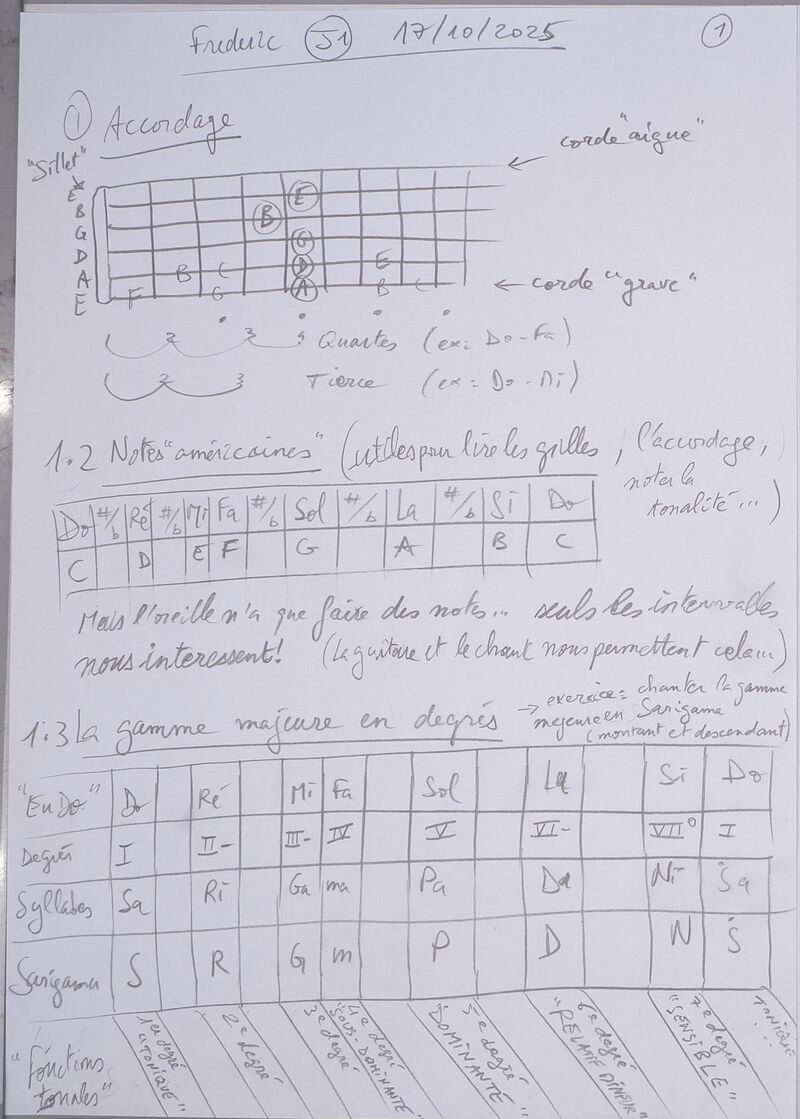 Frederic J1 17/10/2025 1
① Accordage
"Sillet"
corde "aigue"
E
B
G
D
A
E
E
B
G
B C D E
F G A B C
corde "grave"
1 2 3 4 Quartes (ex: Do-Fa)
1 2 3 Tierce (ex: Do-Mi)
1.2 Notes "américaines" (utiles pour lire les grilles, l'accordage,
noter la
tonalité...)
Do #/b Ré #/b Mi Fa #/b Sol #/b La #/b Si Do
C D E F G A B C
Mais l'oreille n'a que faire des notes... seuls les intervalles
nous interessent! (La guitare et le chant nous permettent cela...)
1.3 La gamme majeure en degrés → exercice= chanter la gamme
majeure en Sarigama
(montant et descendant)
"En Do" Do Ré Mi Fa Sol La Si Do
Degrés I II- III- IV V VI- VII° I
Syllabes Sa Ri Ga ma Pa Da Ni Ṡa
Sarigama S R G m P D N Ṡ
"Fonctions
tonales"
1er degré
"TONIQUE"
2e degré
3e degré
4e degré
"SOUS-DOMINANTE"
5e degré
"DOMINANTE"
6e degré
7e degré
"SENSIBLE"
TONIQUE